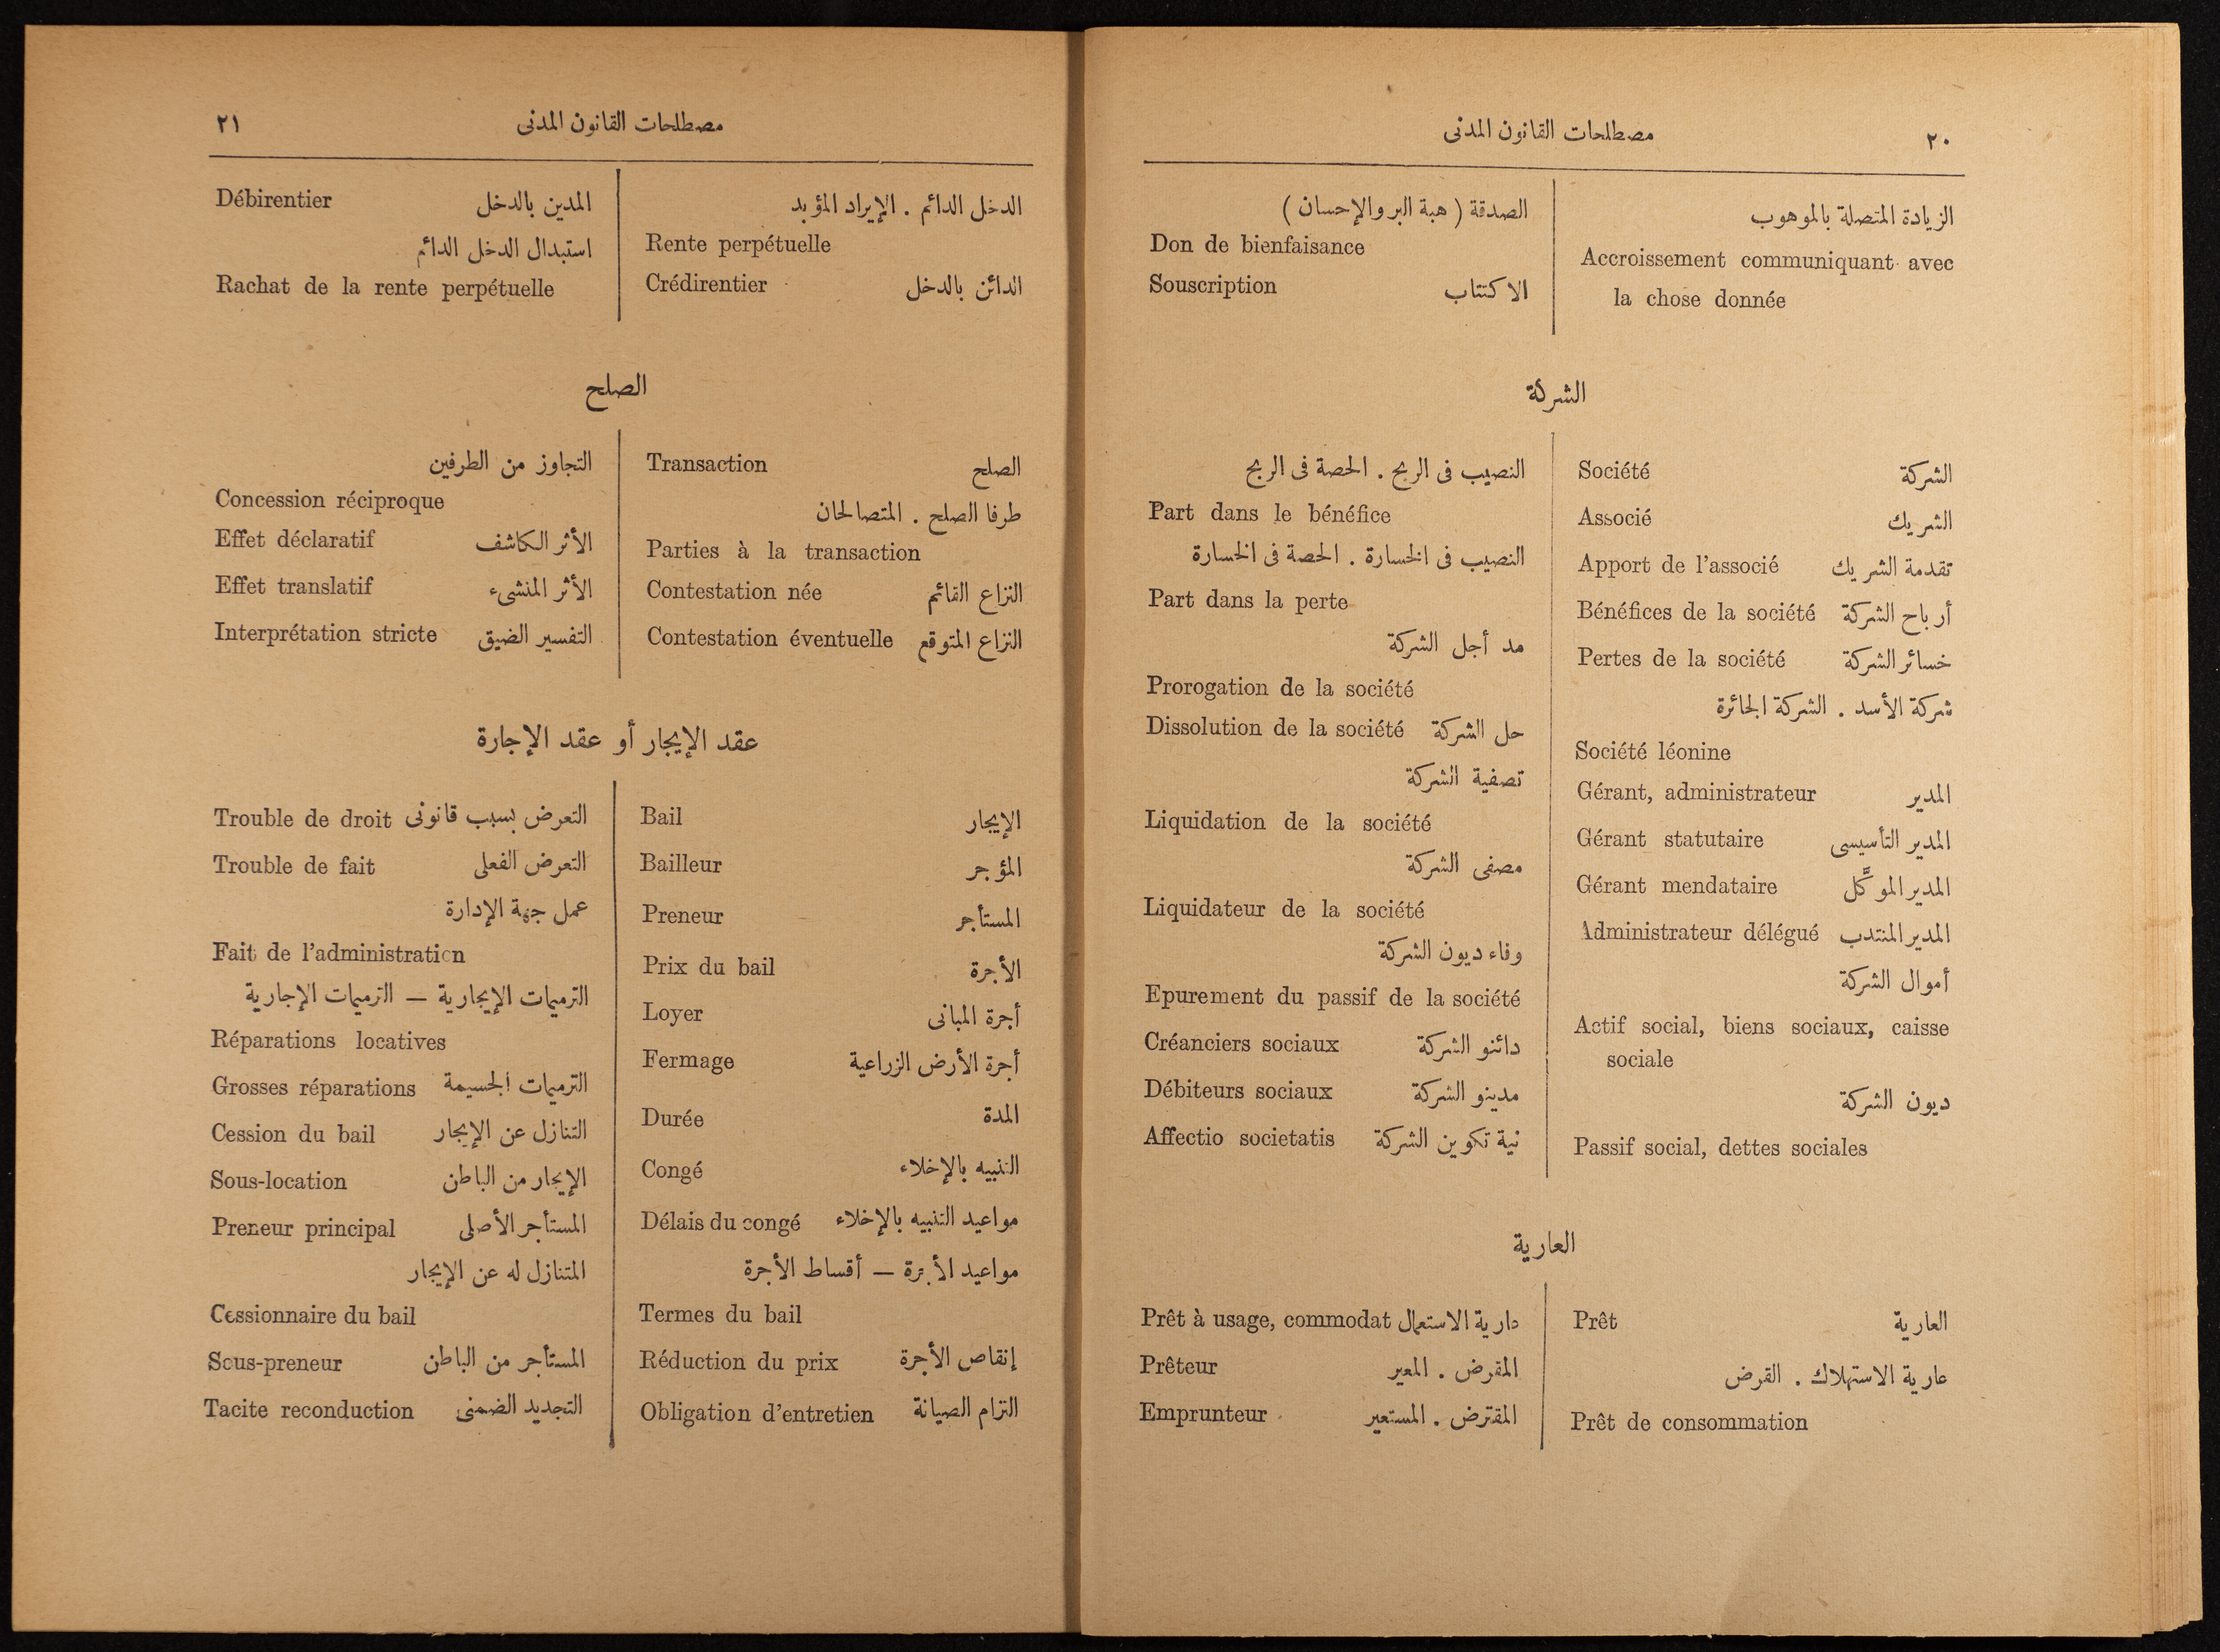 ٢٠
مصطلحات القانون المدنى
الزيادة المتصلة بالموهوب
Accroissement communiquant avec
la chose donnée
الصدقة ( هبة البر والإحسان )
Don de bienfaisance
Souscription الاكتتاب
الشركة
Société الشركة
Associé الشريك
Apport de l'associé تقدمة الشريك
Bénéfices de la société أرباح الشركة
Pertes de la société خسائر الشركة
شركة الأسد . الشركة الجائرة
Société léonine
Gérant, administrateur المدير
Gérant statutaire المدير التأسيسى
Gérant mendataire المدير الموكَّل
Administrateur délégué المدير المنتدب
أموال الشركة
Actif social, biens sociaux, caisse
sociale
ديون الشركة
Passif social, dettes sociales
النصيب فى الربح . الحصة فى الربح
Part dans le bénéfice
النصيب فى الخسارة . الحصة فى الخسارة
Part dans la perte
مد أجل الشركة
Prorogation de la société
Dissolution de la société حل الشركة
تصفية الشركة
Liquidation de la société
مصفى الشركة
Liquidateur de la société
وفاء ديون الشركة
Epurement du passif de la société
Créanciers sociaux دائنو الشركة
Débiteurs sociaux مدينو الشركة
Affectio societatis نية تكوين الشركة
العارية
Prêt العارية
عارية الاستهلاك . القرض
Prêt de consommation
Prêt à usage, commodat عارية الاستعمال
Prêteur المقرض . المعير
Emprunteur المقترض . المستعير
مصطلحات القانون المدنى
٢١
الدخل الدائم . الإيراد المؤبد
Rente perpétuelle
Crédirentier الدائن بالدخل
Débirentier المدين بالدخل
استبدال الدخل الدائم
Rachat de la rente perpétuelle
الصلح
Transaction الصلح
طرفا الصلح . المتصالحان
Parties à la transaction
Contestation née النزاع القائم
Contestation éventuelle النزاع المتوقع
التجاوز من الطرفين
Concession réciproque
Effet déclaratif الأثر الكاشف
Effet translatif الأثر المنشىء
Interprétation stricte التفسير الضيق
عقد الإيجار أو عقد الإجارة
Bail الإيجار
Bailleur المؤجر
Preneur المستأجر
Prix du bail الأجرة
Loyer أجرة المبانى
Fermage أجرة الأرض الزراعية
Durée المدة
Congé التنبيه بالإخلاء
Délais du congé مواعيد التنبيه بالإخلاء
مواعيد الأجرة — أقساط الأجرة
Termes du bail
Réduction du prix إنقاص الأجرة
Obligation d'entretien التزام الصيانة
Trouble de droit التعرض بسبب قانونى
Trouble de fait التعرض الفعلى
عمل جهة الإدارة
Fait de l'administration
الترميمات الإيجارية — الترميمات الإجارية
Réparations locatives
Grosses réparations الترميمات الجسيمة
Cession du bail التنازل عن الإيجار
Sous-location الإيجار من الباطن
Preneur principal المستأجر الأصلى
المتنازل له عن الإيجار
Cessionnaire du bail
Sous-preneur المستأجر من الباطن
Tacite reconduction التجديد الضمنى